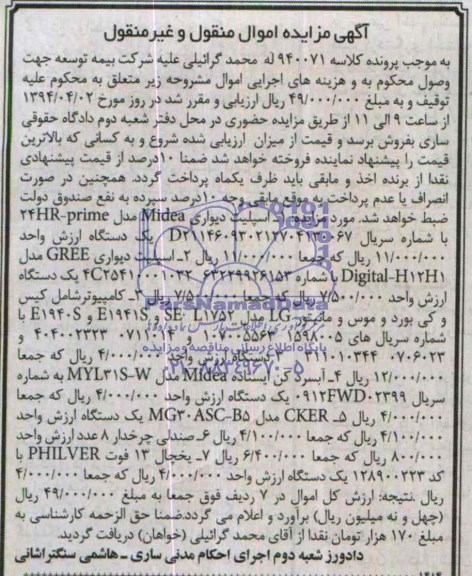 آگهی مزایده اموال منقول و غیرمنقول
به موجب پرونده کلاسه ۹۴۰۰۷۱ له محمد گرائیلی علیه شرکت بیمه توسعه جهت
وصول محکوم به و هزینه های اجرایی اموال مشروحه زیر متعلق به محکوم علیه
توقیف و به مبلغ ۴۹/۰۰۰/۰۰۰ ریال ارزیابی و مقرر شد در روز مورخ ۱۳۹۴/۰۴/۰۲
از ساعت ۹ الی ۱۱ از طریق مزایده حضوری در محل دفتر شعبه دوم دادگاه حقوقی
ساری بفروش برسد و قیمت از میزان ارزیابی شده شروع و به کسانی که بالاترین
قیمت را پیشنهاد نماینده فروخته خواهد شد ضمنا ۱۰درصد از قیمت پیشنهادی
نقدا از برنده اخذ و مابقی باید ظرف یکماه پرداخت گردد. همچنین در صورت
انصراف یا عدم پرداخت به موقع مابقی وجه ۱۰درصد سپرده به نفع صندوق دولت
ضبط خواهد شد. مورد مزایده ۱ـ اسپلیت دیواری Midea مدل ۲۴HR-prime
با شماره سریال یک دستگاه ارزش واحد
۱۱/۰۰۰/۰۰۰ ریال که جمعا ۱۱/۰۰۰/۰۰۰ ریال ۲ـ اسپلیت دیواری GREE مدل
Digital-H۱۲H۱ با شماره ۴C۲۵۴۱۰۰۰۱۰۳۲ ۶۳۲۲۹۹۲۶۱۵۳ یک دستگاه
ارزش واحد ۷/۵۰۰/۰۰۰ ریال که جمعا ۷/۵۰۰/۰۰۰ ریال ۳ـ کامپیوترشامل کیس
و کی بورد و موس و مانیتور LG مدل SE L۱۷۵۲ و E۱۹۴۱S و E۱۹۴۰S با
شماره سریال های ۱۵۹۸۰۰۵ و ۴۰۴۰۰۲۳۲۳ و
۰۷۰۶۰۲۳ ۳۱۱۰۱۰۳۴۴ ۳ دستگاه ارزش واحد ۴/۰۰۰/۰۰۰ ریال که جمعا
۱۲/۰۰۰/۰۰۰ ریال ۴ـ آبسرد کن ایستاده Midea مدل MYL۳۱S-W به شماره
سریال ۰۹۱۲FWD۰۲۳۹۹ یک دستگاه ارزش واحد ۴/۰۰۰/۰۰۰ ریال که جمعا
۴/۰۰۰/۰۰۰ ریال ۵ـ CKER مدل MG۳۰ASC-B۵ یک دستگاه ارزش واحد
۴/۱۰۰/۰۰۰ ریال که جمعا ۴/۱۰۰/۰۰۰ ریال ۶ـ صندلی چرخدار ۸ عدد ارزش واحد
۸۰۰/۰۰۰ ریال که جمعا ۶/۴۰۰/۰۰۰ ریال ۷ـ یخچال ۱۳ فوت PHILVER با
کد ۱۲۸۹۰۰۲۲۳ یک دستگاه ارزش واحد ۴/۰۰۰/۰۰۰ ریال که جمعا ۴/۰۰۰/۰۰۰
ریال .نتیجه: ارزش کل اموال در ۷ ردیف فوق جمعا به مبلغ ۴۹/۰۰۰/۰۰۰ ریال
(چهل و نه میلیون ریال) برآورد و اعلام می گردد.ضمنا حق الزحمه کارشناسی به
مبلغ ۱۷۰ هزار تومان نقدا از آقای محمد گرائیلی (خواهان) دریافت گردید.
دادورز شعبه دوم اجرای احکام مدنی ساری ـ هاشمی سنگتراشانی
ParsNamadData
پایگاه اطلاع رسانی مناقصه و مزایده
۰۲۱-۸۸۳۴۹۶۷۰-۵